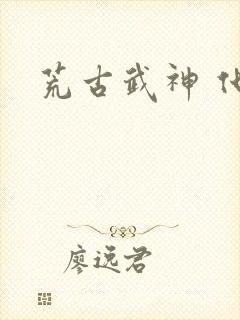 荒古武神
廖远君